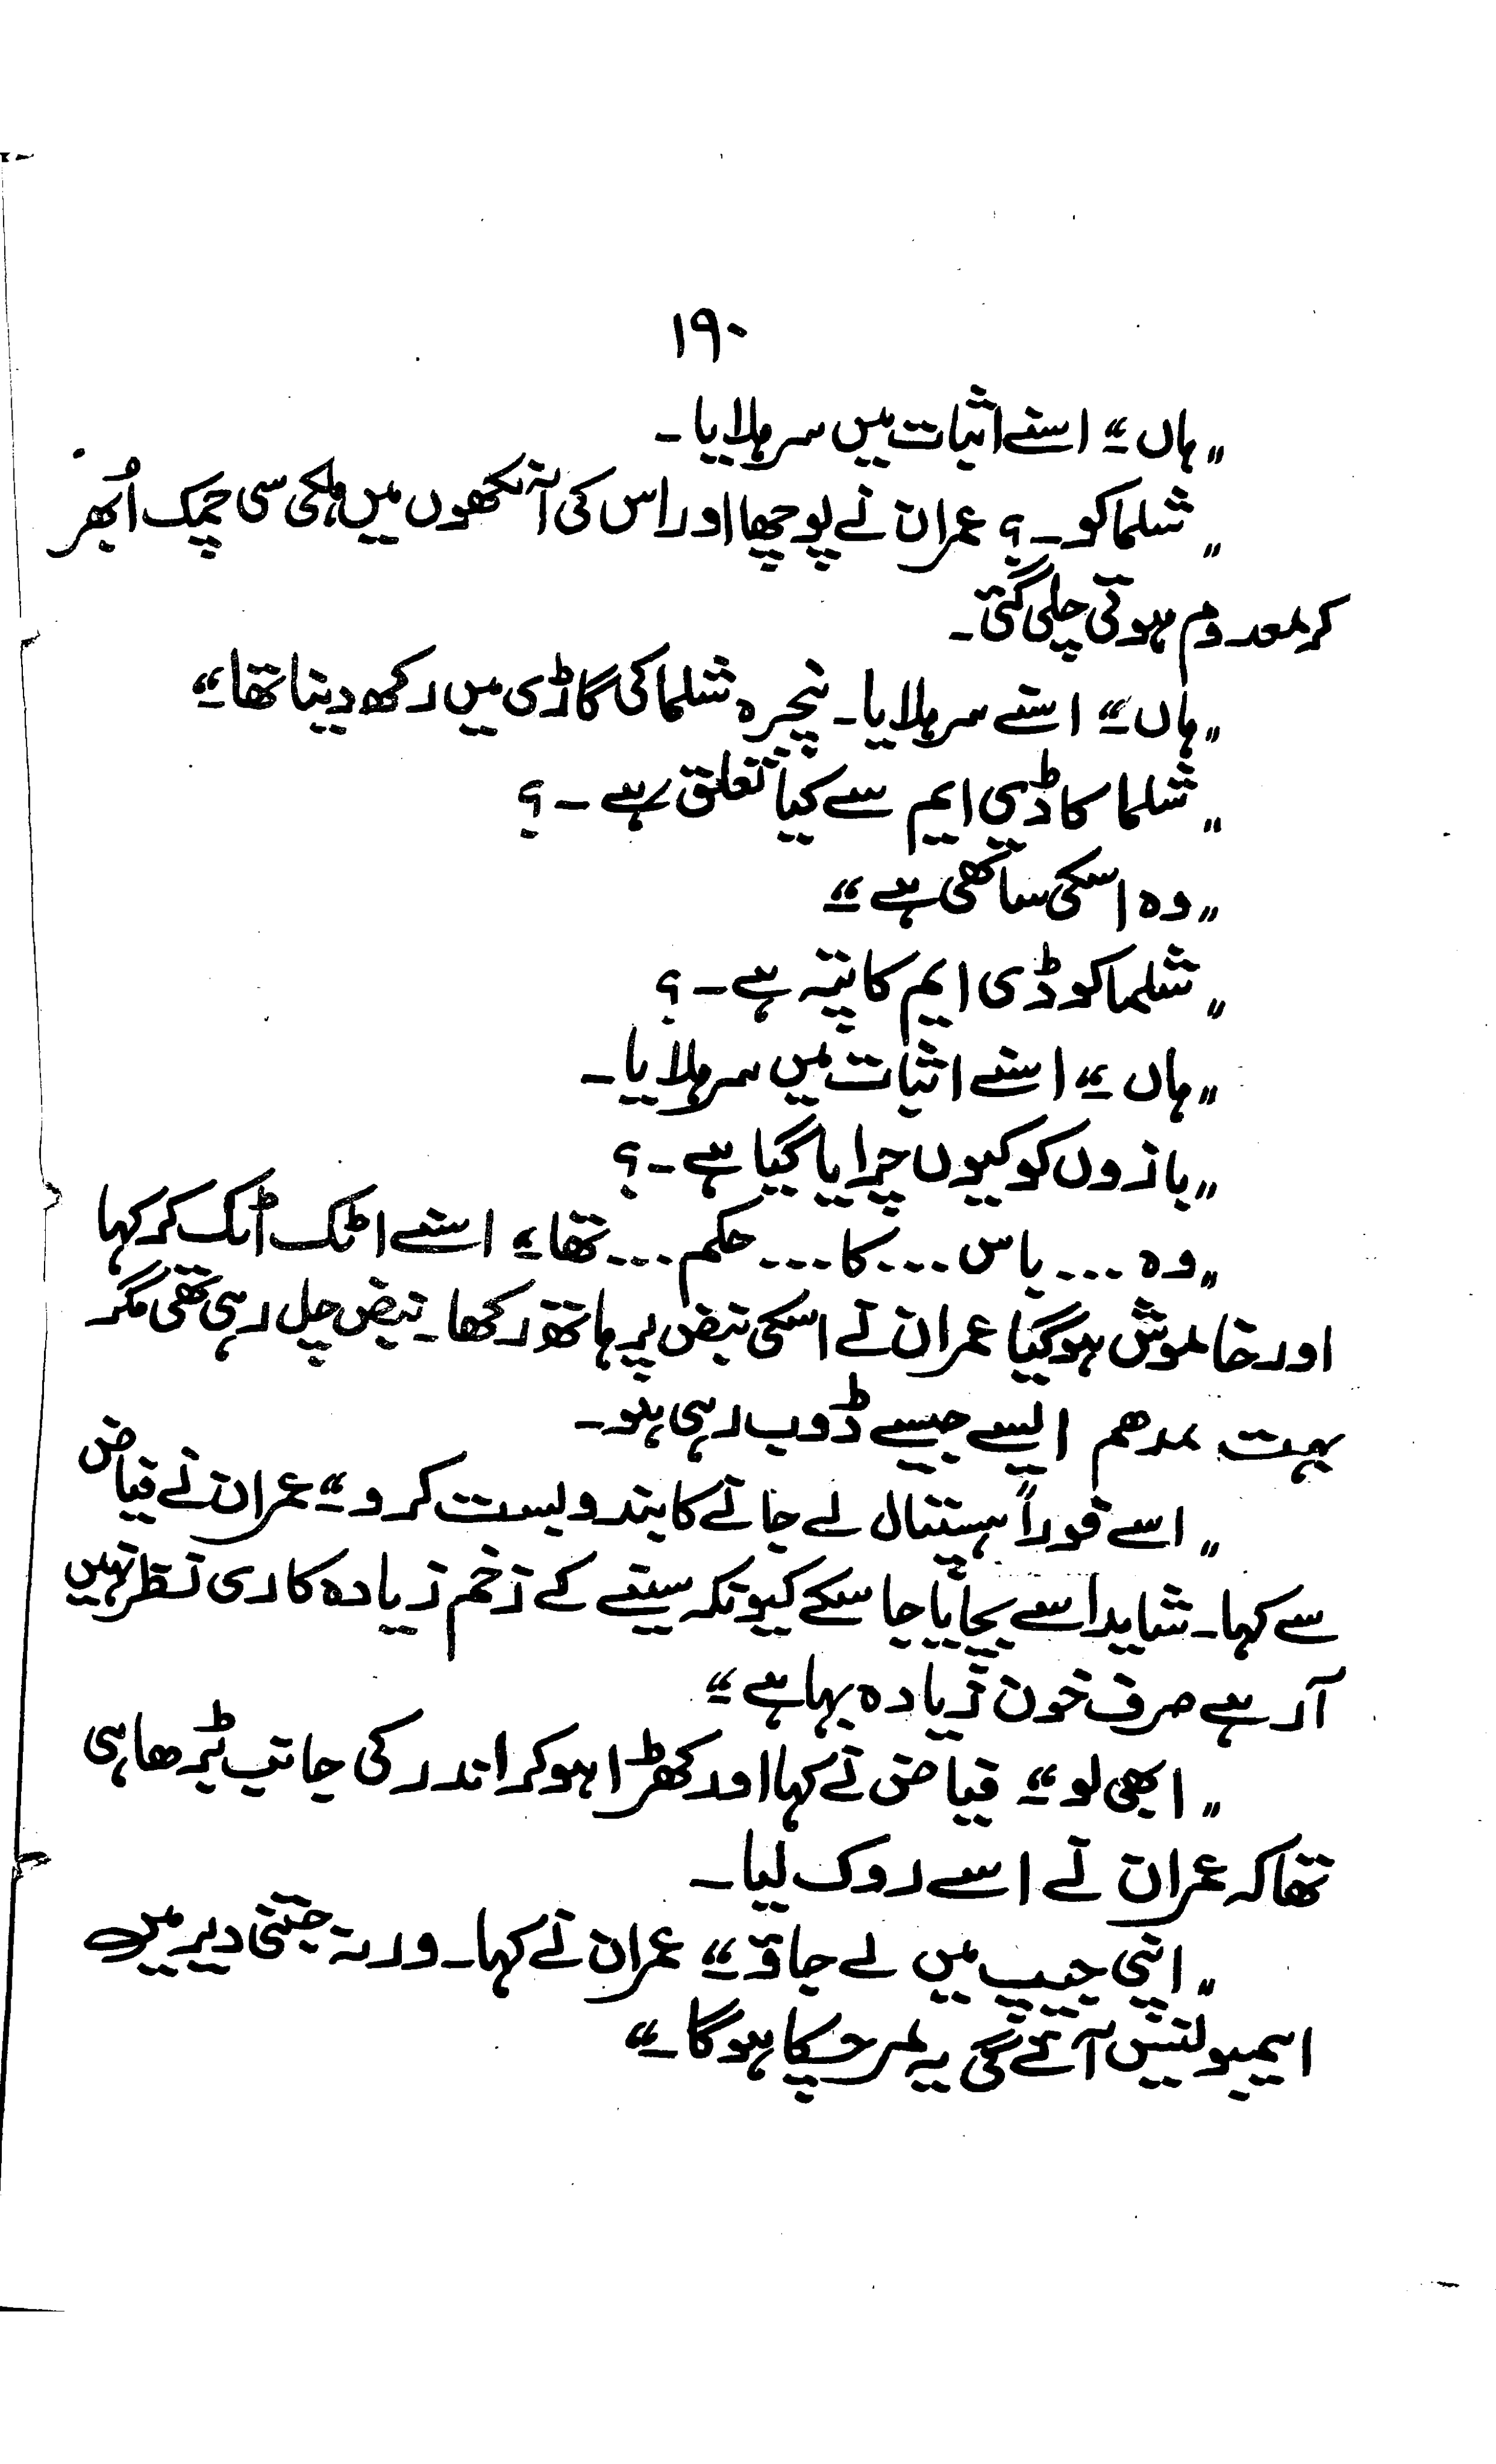 ۱۹۰
"ہاں" اسنے اثبات میں سر ہلایا۔
"شلما کو۔؟ عمران نے پوچھا اور اس کی آنکھوں میں ہلکی سی چمک اُبھر
کر معدوم ہوتی چلی گئی۔
"ہاں" اسنے سر ہلایا۔ پنجرہ شلما کی گاڑی میں رکھ دینا تھا"
"شلما کا ڈی ایم سے کیا تعلق ہے۔؟
"وہ اسکی ساتھی ہے"
"شلما کو ڈی ایم کا پتہ ہے۔؟
"ہاں" اسنے اثبات میں سر ہلایا۔
"بازوں کو کیوں چرایا گیا ہے۔؟
"وہ... باس... کا... حکم... تھا" اسنے اٹک اٹک کر کہا
اور خاموش ہو گیا عمران نے اسکی نبض پر ہاتھ رکھا۔ نبض چل رہی تھی مگر
بہت مدھم ایسے جیسے ڈوب رہی ہو۔
"اسے فوراً ہسپتال لے جانے کا بندوبست کرو" عمران نے فیاض
سے کہا۔ شاید اسے بچایا جا سکے کیونکہ سینے کے زخم زیادہ کاری نظر نہیں
آرہے صرف خون زیادہ بہا ہے"
"ابھی لو" فیاض نے کہا اور کھڑا ہو کر اندر کی جانب بڑھا ہی
تھا کہ عمران نے اسے روک لیا۔
"اپنی جیپ میں لے جاؤ" عمران نے کہا۔ ورنہ جتنی دیر میں
ایمبولینس آئے گی یہ مر چکا ہوگا۔"